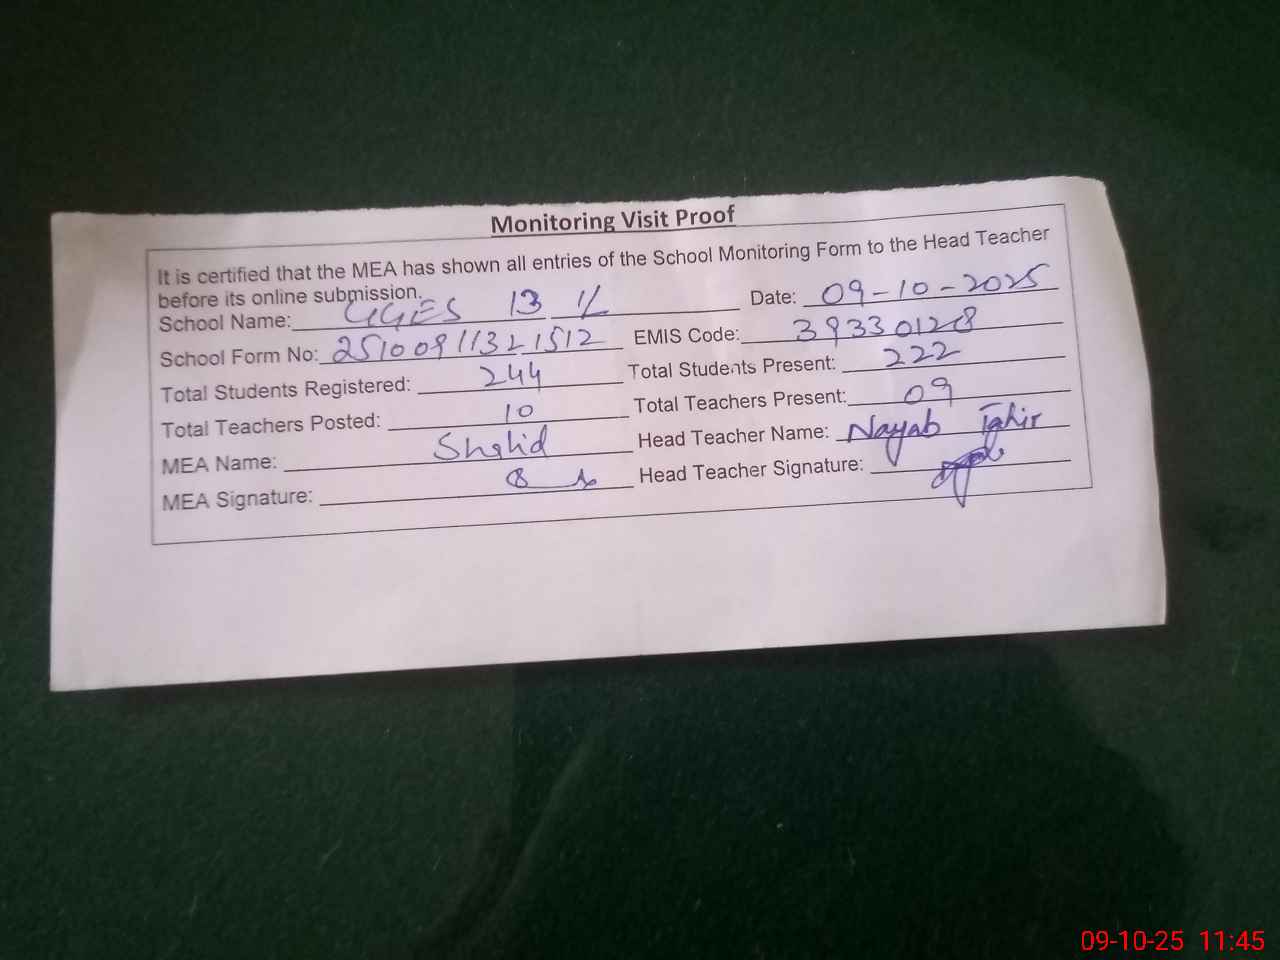 Monitoring Visit Proof
It is certified that the MEA has shown all entries of the School Monitoring Form to the Head Teacher
before its online submission.
School Name: GGES 13 1/L Date: 09-10-2025
School Form No: 2510091132 1512 EMIS Code: 39330128
Total Students Registered: 244 Total Students Present: 222
Total Teachers Posted: 10 Total Teachers Present: 09
MEA Name: Shahid Head Teacher Name: Nayab Tahir
MEA Signature: Head Teacher Signature:
09-10-25 11:45